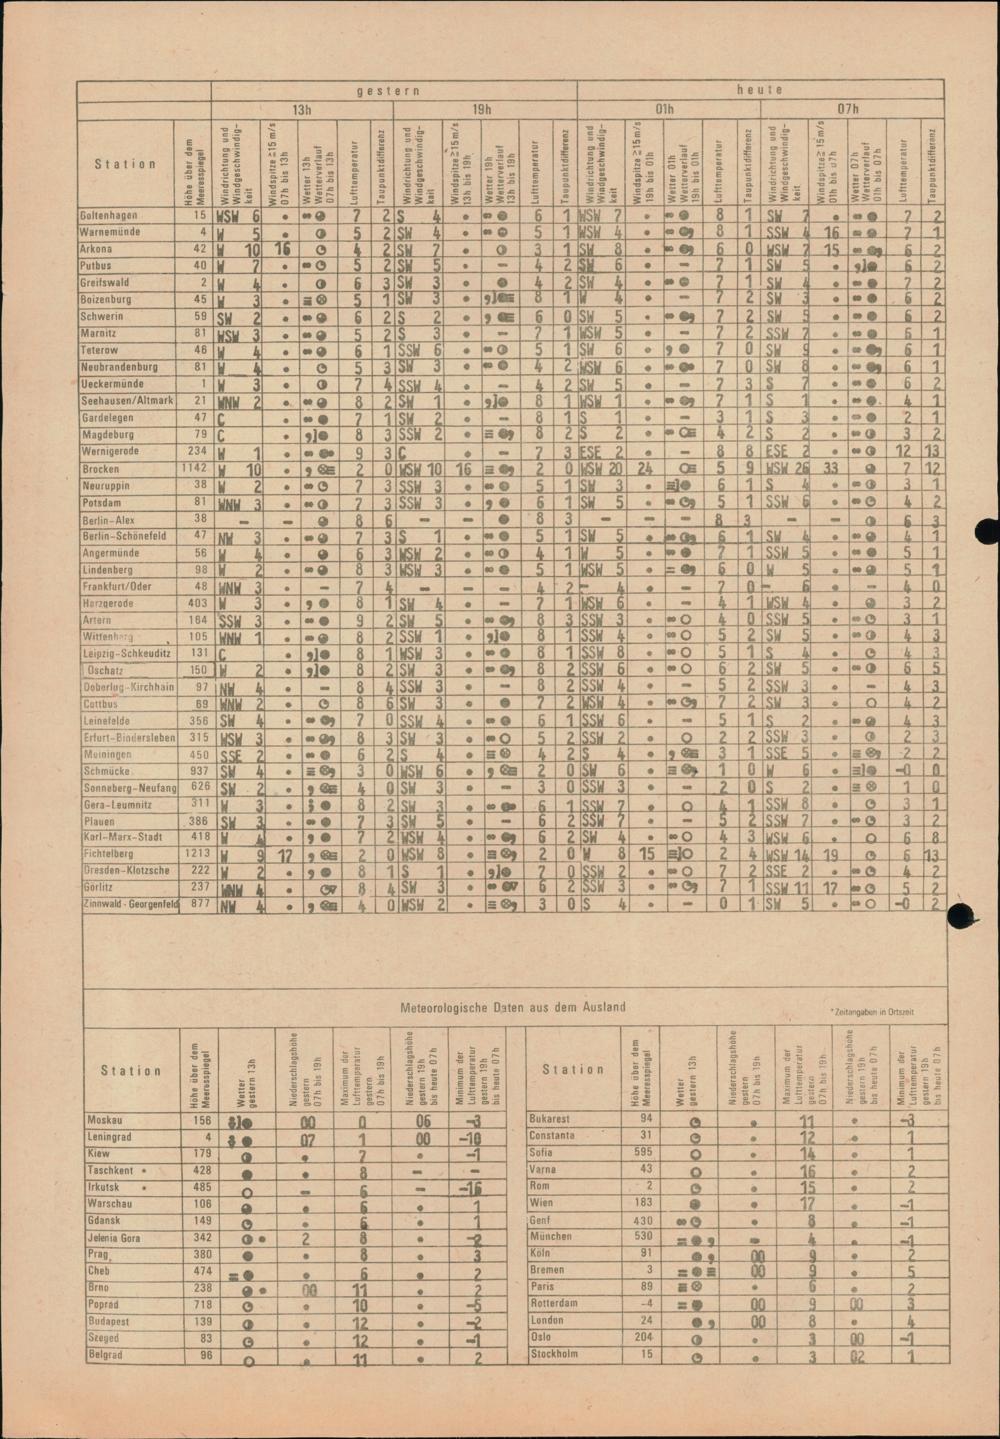 gestern heute
13h 19h 01h 07h
Station
Höhe über dem Meeresspiegel
Windrichtung und Windgeschwindig-keit
Windspitze ≥ 15 m/s 07h bis 13h
Wetter 13h Wetterverlauf 07h bis 13h
Lufttemperatur
Taupunktdifferenz
Windrichtung und Windgeschwindig-keit
Windspitze ≥ 15 m/s 13h bis 19h
Wetter 19h Wetterverlauf 13h bis 19h
Lufttemperatur
Taupunktdifferenz
Windrichtung und Windgeschwindig-keit
Windspitze ≥ 15 m/s 19h bis 01h
Wetter 01h Wetterverlauf 19h bis 01h
Lufttemperatur
Taupunktdifferenz
Windrichtung und Windgeschwindig-keit
Windspitze ≥ 15 m/s 01h bis 07h
Wetter 07h Wetterverlauf 01h bis 07h
Lufttemperatur
Taupunktdifferenz
Boltenhagen 15 WSW 6 7 2 S 4 6 1 WSW 7 8 1 SW 7 7 2
Warnemünde 4 W 5 5 2 SW 4 5 1 WSW 4 8 1 SSW 4 16 7 1
Arkona 42 W 10 16 4 2 SW 7 3 1 SW 8 6 0 WSW 7 15 6 2
Putbus 40 W 7 5 2 SW 5 – 4 2 SW 6 – 7 1 SW 5 6 2
Greifswald 2 W 4 6 3 SW 3 4 2 SW 4 7 1 SW 4 7 2
Boizenburg 45 W 3 5 1 SW 3 8 1 W 4 – 7 2 SW 3 6 2
Schwerin 59 SW 2 6 2 S 2 6 0 SW 5 7 2 SW 5 6 2
Marnitz 81 WSW 3 5 2 S 3 – 7 1 WSW 5 7 2 SSW 7 6 1
Teterow 46 W 4 6 1 SSW 6 5 1 SW 6 7 0 SW 9 6 1
Neubrandenburg 81 W 4 5 3 SW 3 4 2 WSW 6 7 0 SW 8 6 1
Ueckermünde 1 W 3 7 4 SSW 4 – 4 2 SW 5 – 7 3 S 7 6 2
Seehausen/Altmark 21 WNW 2 8 2 SW 1 8 1 WSW 1 7 1 S 1 4 1
Gardelegen 47 C 7 1 SW 2 – 8 1 S 1 – 3 1 S 3 2 1
Magdeburg 79 C 8 3 SSW 2 8 2 S 2 4 2 S 2 3 2
Wernigerode 234 W 1 9 3 C – 7 3 ESE 2 – 8 8 ESE 2 12 13
Brocken 1142 W 10 2 0 WSW 10 16 2 0 WSW 20 24 5 9 WSW 26 33 7 12
Neuruppin 38 W 2 7 3 SSW 3 5 1 SW 3 6 1 S 4 3 1
Potsdam 81 WNW 3 7 3 SSW 3 6 1 SW 5 5 1 SSW 6 4 2
Berlin–Alex 38 – – 8 6 – – 8 3 – – – 8 3 – – 6 3
Berlin–Schönefeld 47 NW 3 7 3 S 1 5 1 SW 5 6 1 SW 4 4 1
Angermünde 56 W 4 6 3 WSW 2 4 1 W 5 7 1 SSW 5 5 1
Lindenberg 98 W 2 8 3 WSW 3 5 1 WSW 5 6 0 W 5 5 1
Frankfurt/Oder 48 WNW 3 – 7 4 – 4 2 – 4 – 7 0 – 6 – 4 0
Harzgerode 403 W 3 8 1 SW 4 – 7 1 WSW 6 – 4 1 WSW 4 3 2
Artern 164 SSW 3 9 2 SW 5 8 3 SSW 3 4 0 SSW 5 3 1
Wittenberg 105 WNW 1 8 2 SSW 1 8 1 SSW 4 5 2 SW 5 4 3
Leipzig–Schkeuditz 131 C 8 1 WSW 3 8 1 SSW 8 5 1 S 4 4 3
Oschatz 150 W 2 8 2 SW 3 8 2 SSW 6 6 2 SW 5 6 5
Doberlug–Kirchhain 97 NW 4 – 8 4 SSW 3 – 8 2 SSW 4 – 5 2 SSW 3 – 4 3
Cottbus 69 WNW 2 8 6 SW 3 7 2 WSW 4 7 2 SW 3 4 2
Leinefelde 356 SW 4 7 0 SSW 4 6 1 SSW 6 – 5 1 S 2 4 3
Erfurt–Bindersleben 315 WSW 3 8 3 SW 3 5 2 SSW 2 2 2 SSW 3 2 3
Meiningen 450 SSE 2 6 2 S 4 4 2 S 4 3 1 SSE 5 -2 2
Schmücke 937 SW 4 3 0 WSW 6 2 0 SW 6 1 0 W 6 –0 0
Sonneberg–Neufang 626 SW 2 4 0 SW 3 – 3 0 SSW 3 – 2 0 S 2 1 0
Gera–Leumnitz 311 W 3 8 2 SW 3 6 1 SSW 7 4 1 SSW 8 3 1
Plauen 386 SW 3 7 3 SW 5 – 6 2 SSW 7 – 5 2 SSW 7 3 2
Karl–Marx–Stadt 418 W 4 7 2 WSW 4 6 2 SW 4 4 3 WSW 6 6 8
Fichtelberg 1213 W 9 17 2 0 WSW 8 2 0 W 8 15 2 4 WSW 14 19 6 13
Dresden–Klotzsche 222 W 2 8 1 S 1 7 0 SSW 2 7 2 SSE 2 4 2
Görlitz 237 WNW 4 8 4 SW 3 6 2 SSW 3 7 1 SSW 11 17 5 2
Zinnwald - Georgenfeld 877 NW 4 4 0 WSW 2 3 0 S 4 – 0 1 SW 5 –0 2
Meteorologische Daten aus dem Ausland
*Zeitangaben in Ortszeit
Station
Höhe über dem Meeresspiegel
Wetter gestern 13h
Niederschlagshöhe gestern 07h bis 19h
Maximum der Lufttemperatur gestern 07h bis 19h
Niederschlagshöhe gestern 19h bis heute 07h
Minimum der Lufttemperatur gestern 19h bis heute 07h
Moskau 156 00 0 06 –3
Leningrad 4 07 1 00 –10
Kiew 179 7 –1
Taschkent * 428 8 – –
Irkutsk * 485 – 6 – –16
Warschau 106 6 1
Gdansk 149 6 1
Jelenia Gora 342 2 8 –2
Prag 380 8 3
Cheb 474 6 2
Brno 238 00 11 2
Poprad 718 10 –5
Budapest 139 12 –2
Szeged 83 12 –1
Belgrad 96 11 2
Station
Höhe über dem Meeresspiegel
Wetter gestern 13h
Niederschlagshöhe gestern 07h bis 19h
Maximum der Lufttemperatur gestern 07h bis 19h
Niederschlagshöhe gestern 19h bis heute 07h
Minimum der Lufttemperatur gestern 19h bis heute 07h
Bukarest 94 11 –3
Constanta 31 12 1
Sofia 595 14 1
Varna 43 16 2
Rom 2 15 2
Wien 183 17 –1
Genf 430 8 –1
München 530 4 –1
Köln 91 00 9 2
Bremen 3 00 9 5
Paris 89 6 2
Rotterdam -4 00 9 00 3
London 24 00 8 4
Oslo 204 3 00 –1
Stockholm 15 3 02 1